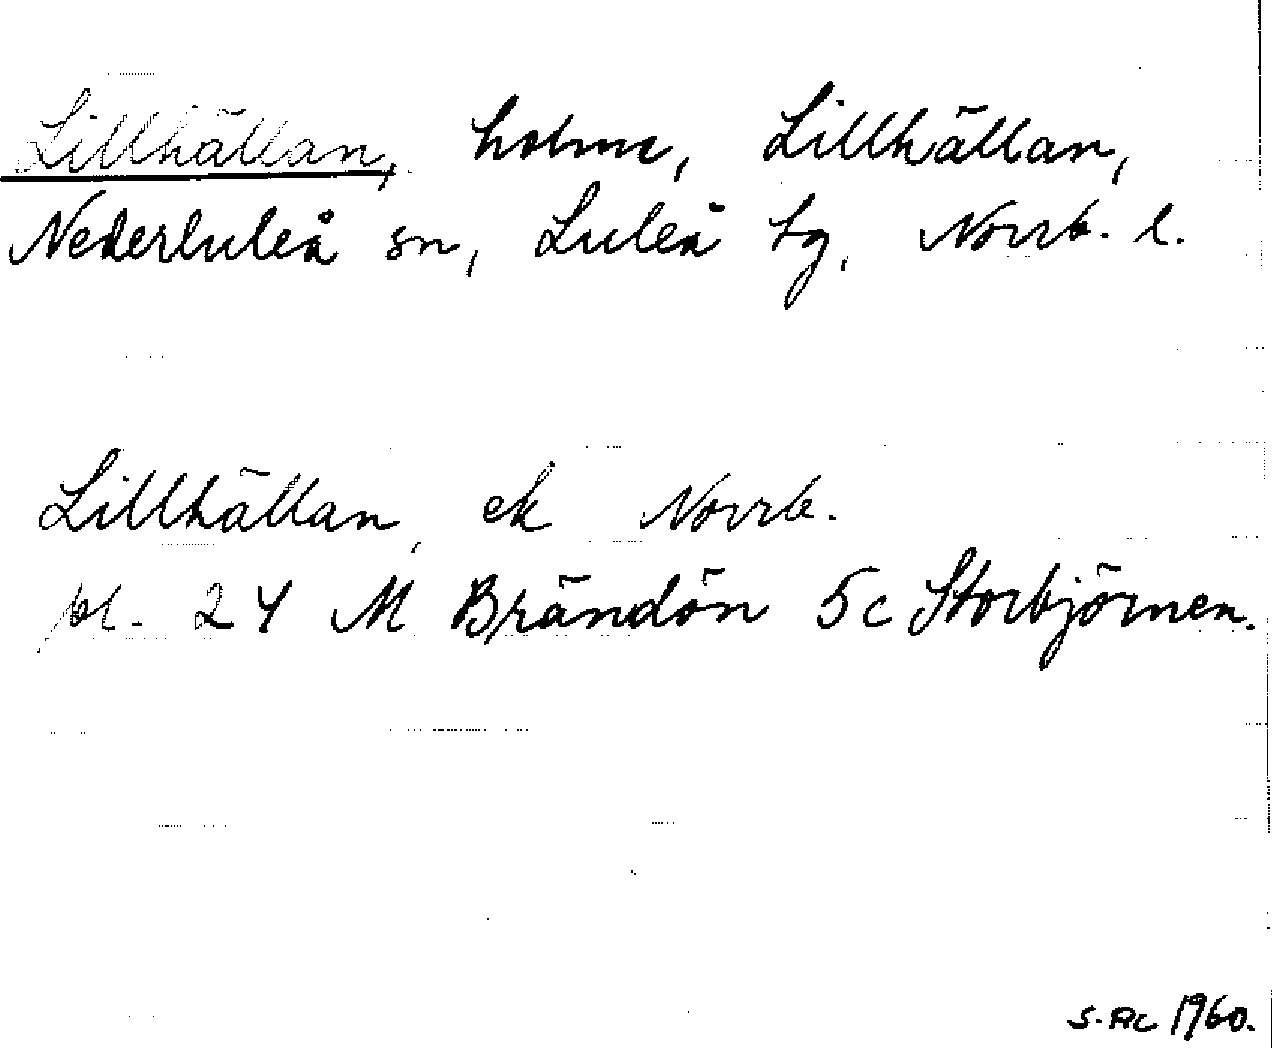 Lillhällan, holme, Lillhällan,
Nederluleå sn, Luleå tg, Norrb. l.
Lillhällan, ek Norrb.
pl. 24 M Brändön 5c Storbjörnen.
S. Ac 1960.